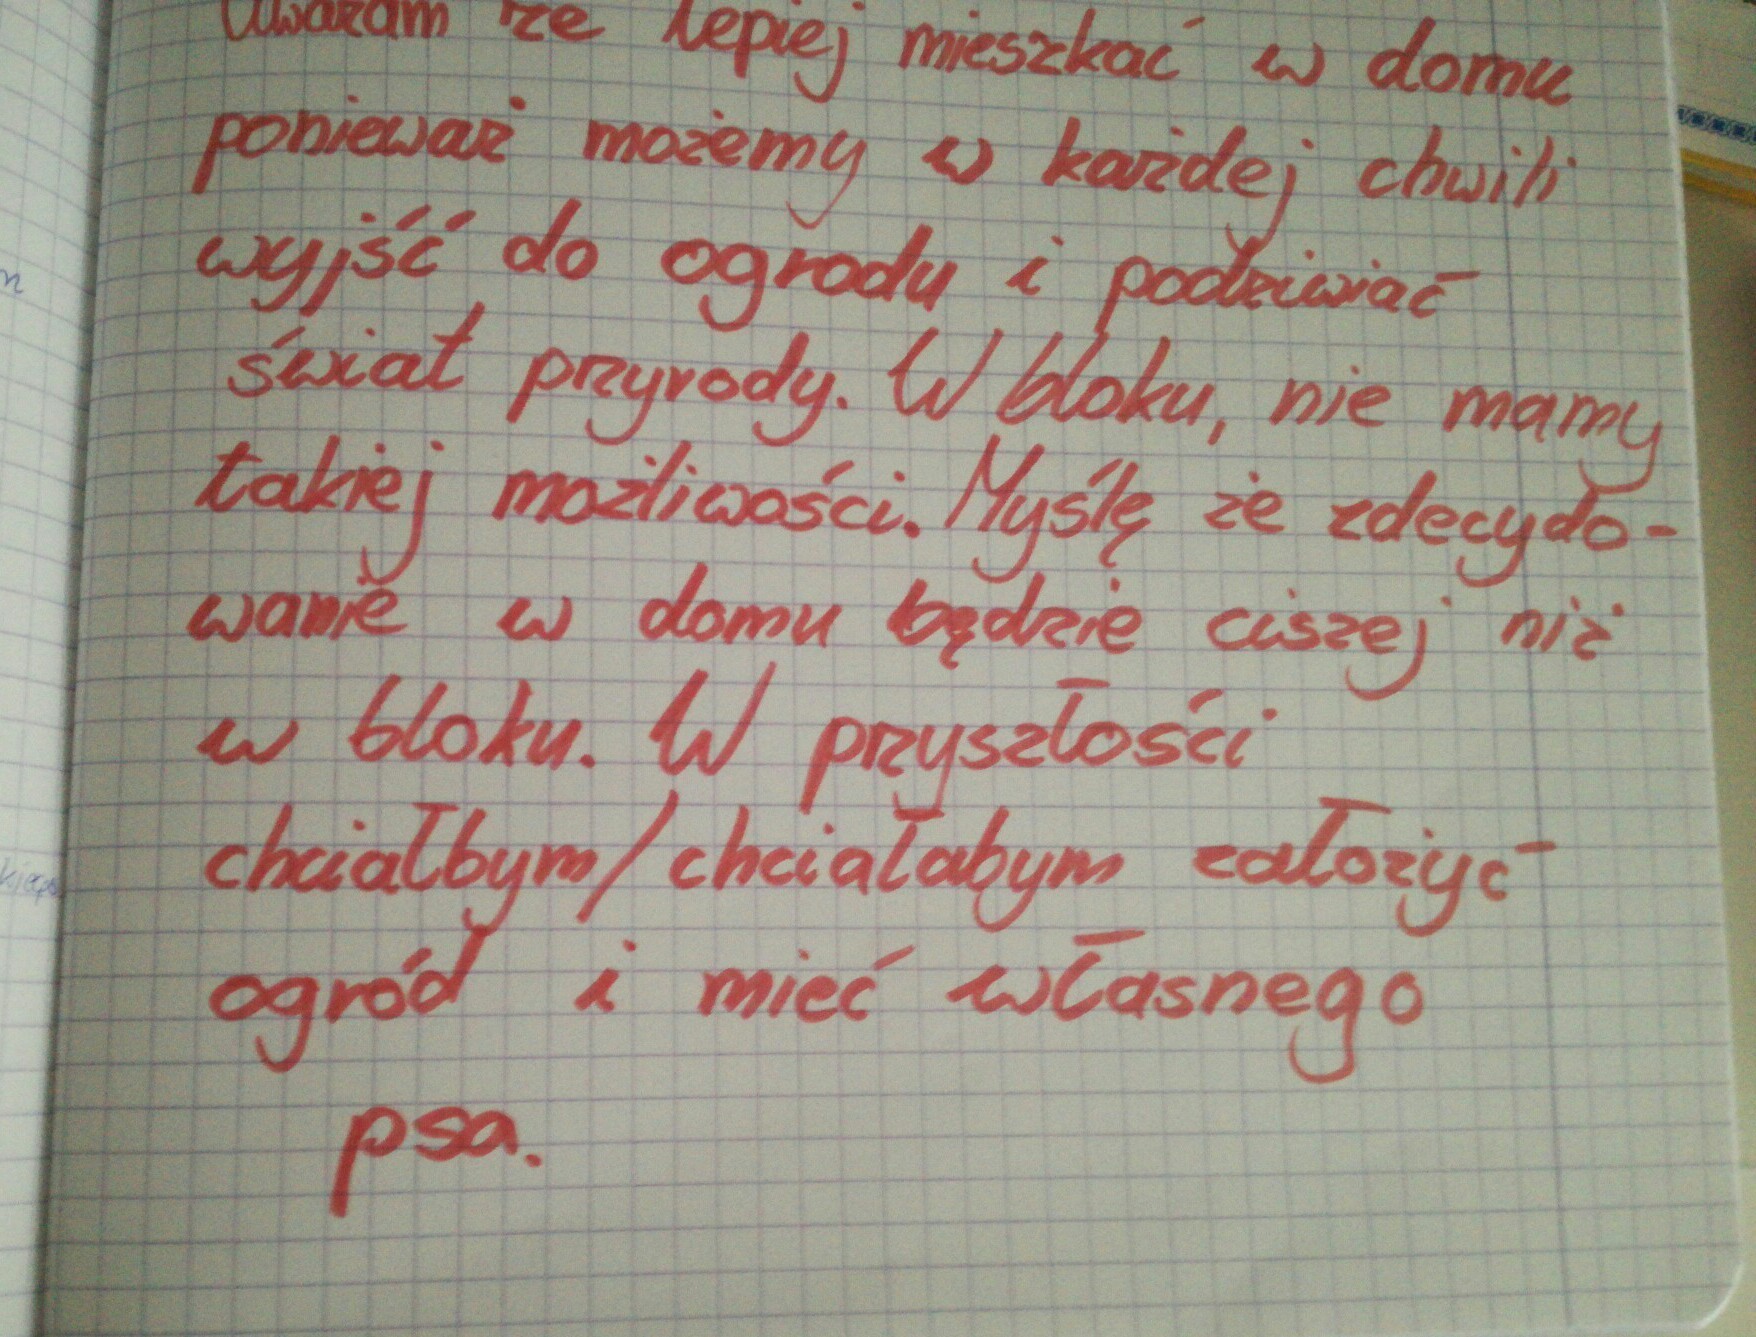 Uważam że lepiej mieszkać w domu
ponieważ możemy w każdej chwili
wyjść do ogrodu i podziwiać
świat przyrody. W bloku, nie mamy
takiej możliwości. Myślę że zdecydo-
wanie w domu będzie ciszej niż
w bloku. W przyszłości
chciałbym/chciałabym założyć
ogród i mieć własnego
psa.